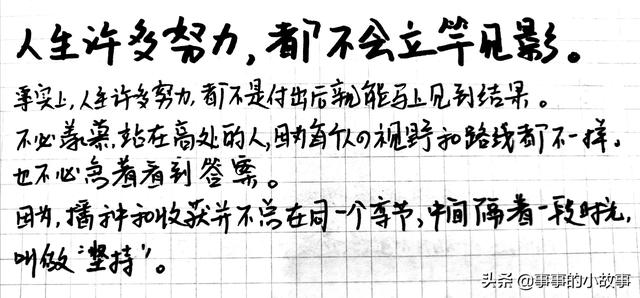 人生许多努力，都不会立竿见影。
事实上，人生许多努力，都不是付出后就能马上见到结果。
不必羡慕，站在高处的人，因为每个人的视野和路线都不一样，
也不必急着看到答案。
因为，播种和收获并不总在同一个季节，中间隔着一段时光，
叫做“坚持”。
头条 @事事的小故事